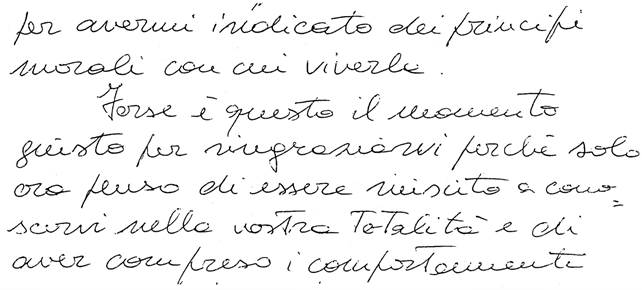 per avermi indicato dei principi
morali con cui viverla.
Forse è questo il momento
giusto per ringraziarvi perché solo
ora penso di essere riuscito a cono=
scervi nella vostra Totalità e di
aver compreso i comportamenti